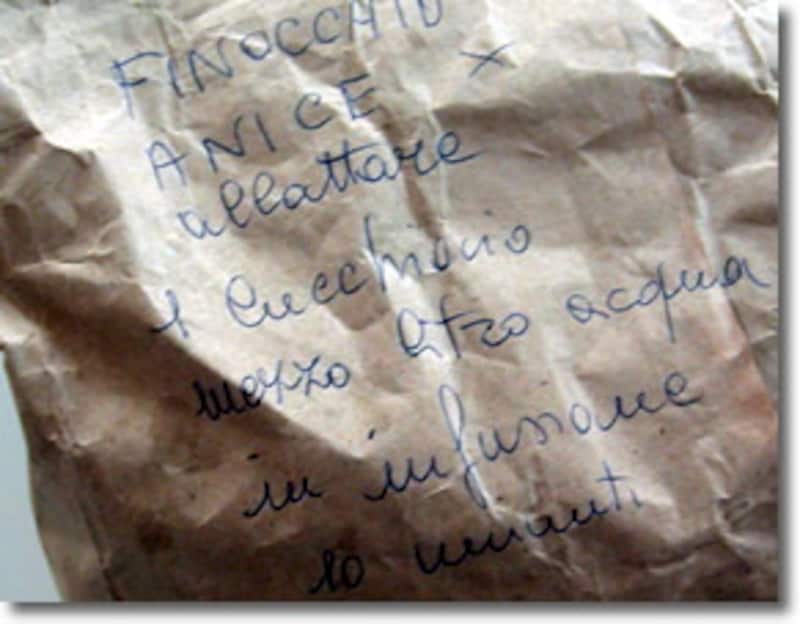 FINOCCHIO
ANICE x
allattare
1 Cucchiaio
mezzo litro acqua
in infusione
10 minuti